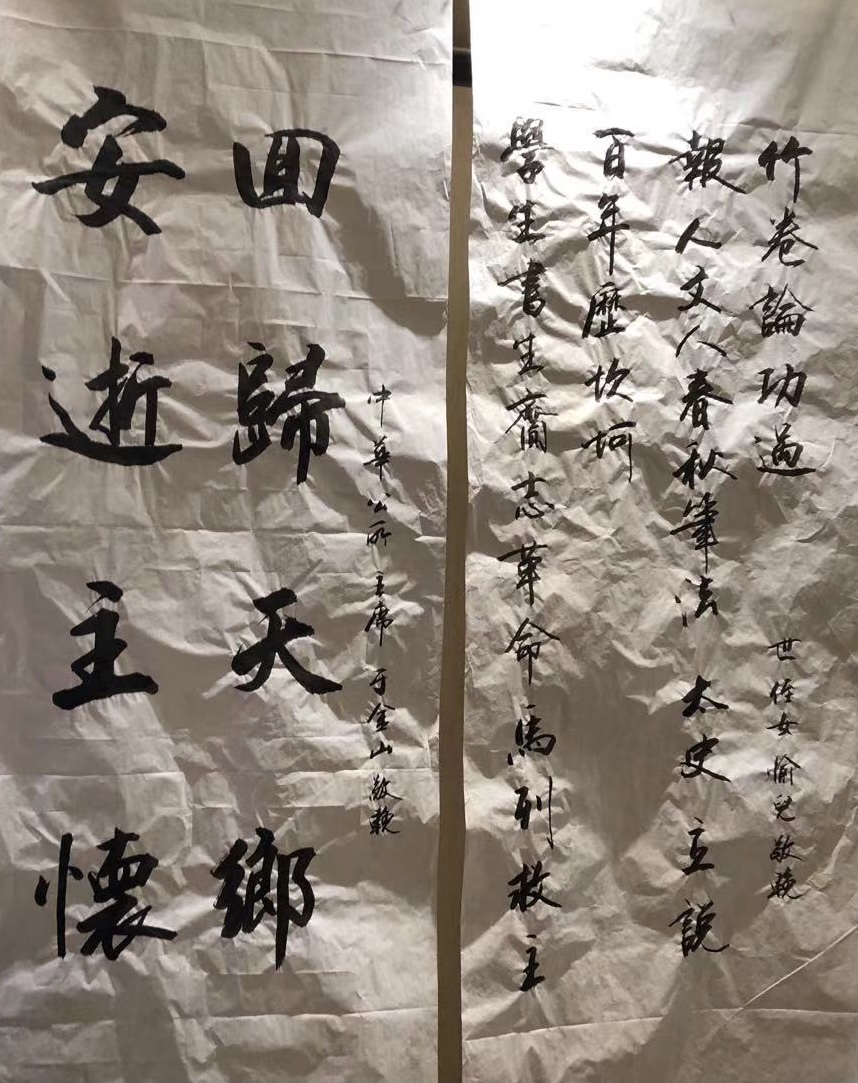 竹卷論功過
世侄女愉兒敬輓
報人文人春秋筆法太史立說
百年歷坎坷
學生書生齎志革命馬列救主
中華公所主席于金山敬輓
囬歸天鄉
安逝主懷